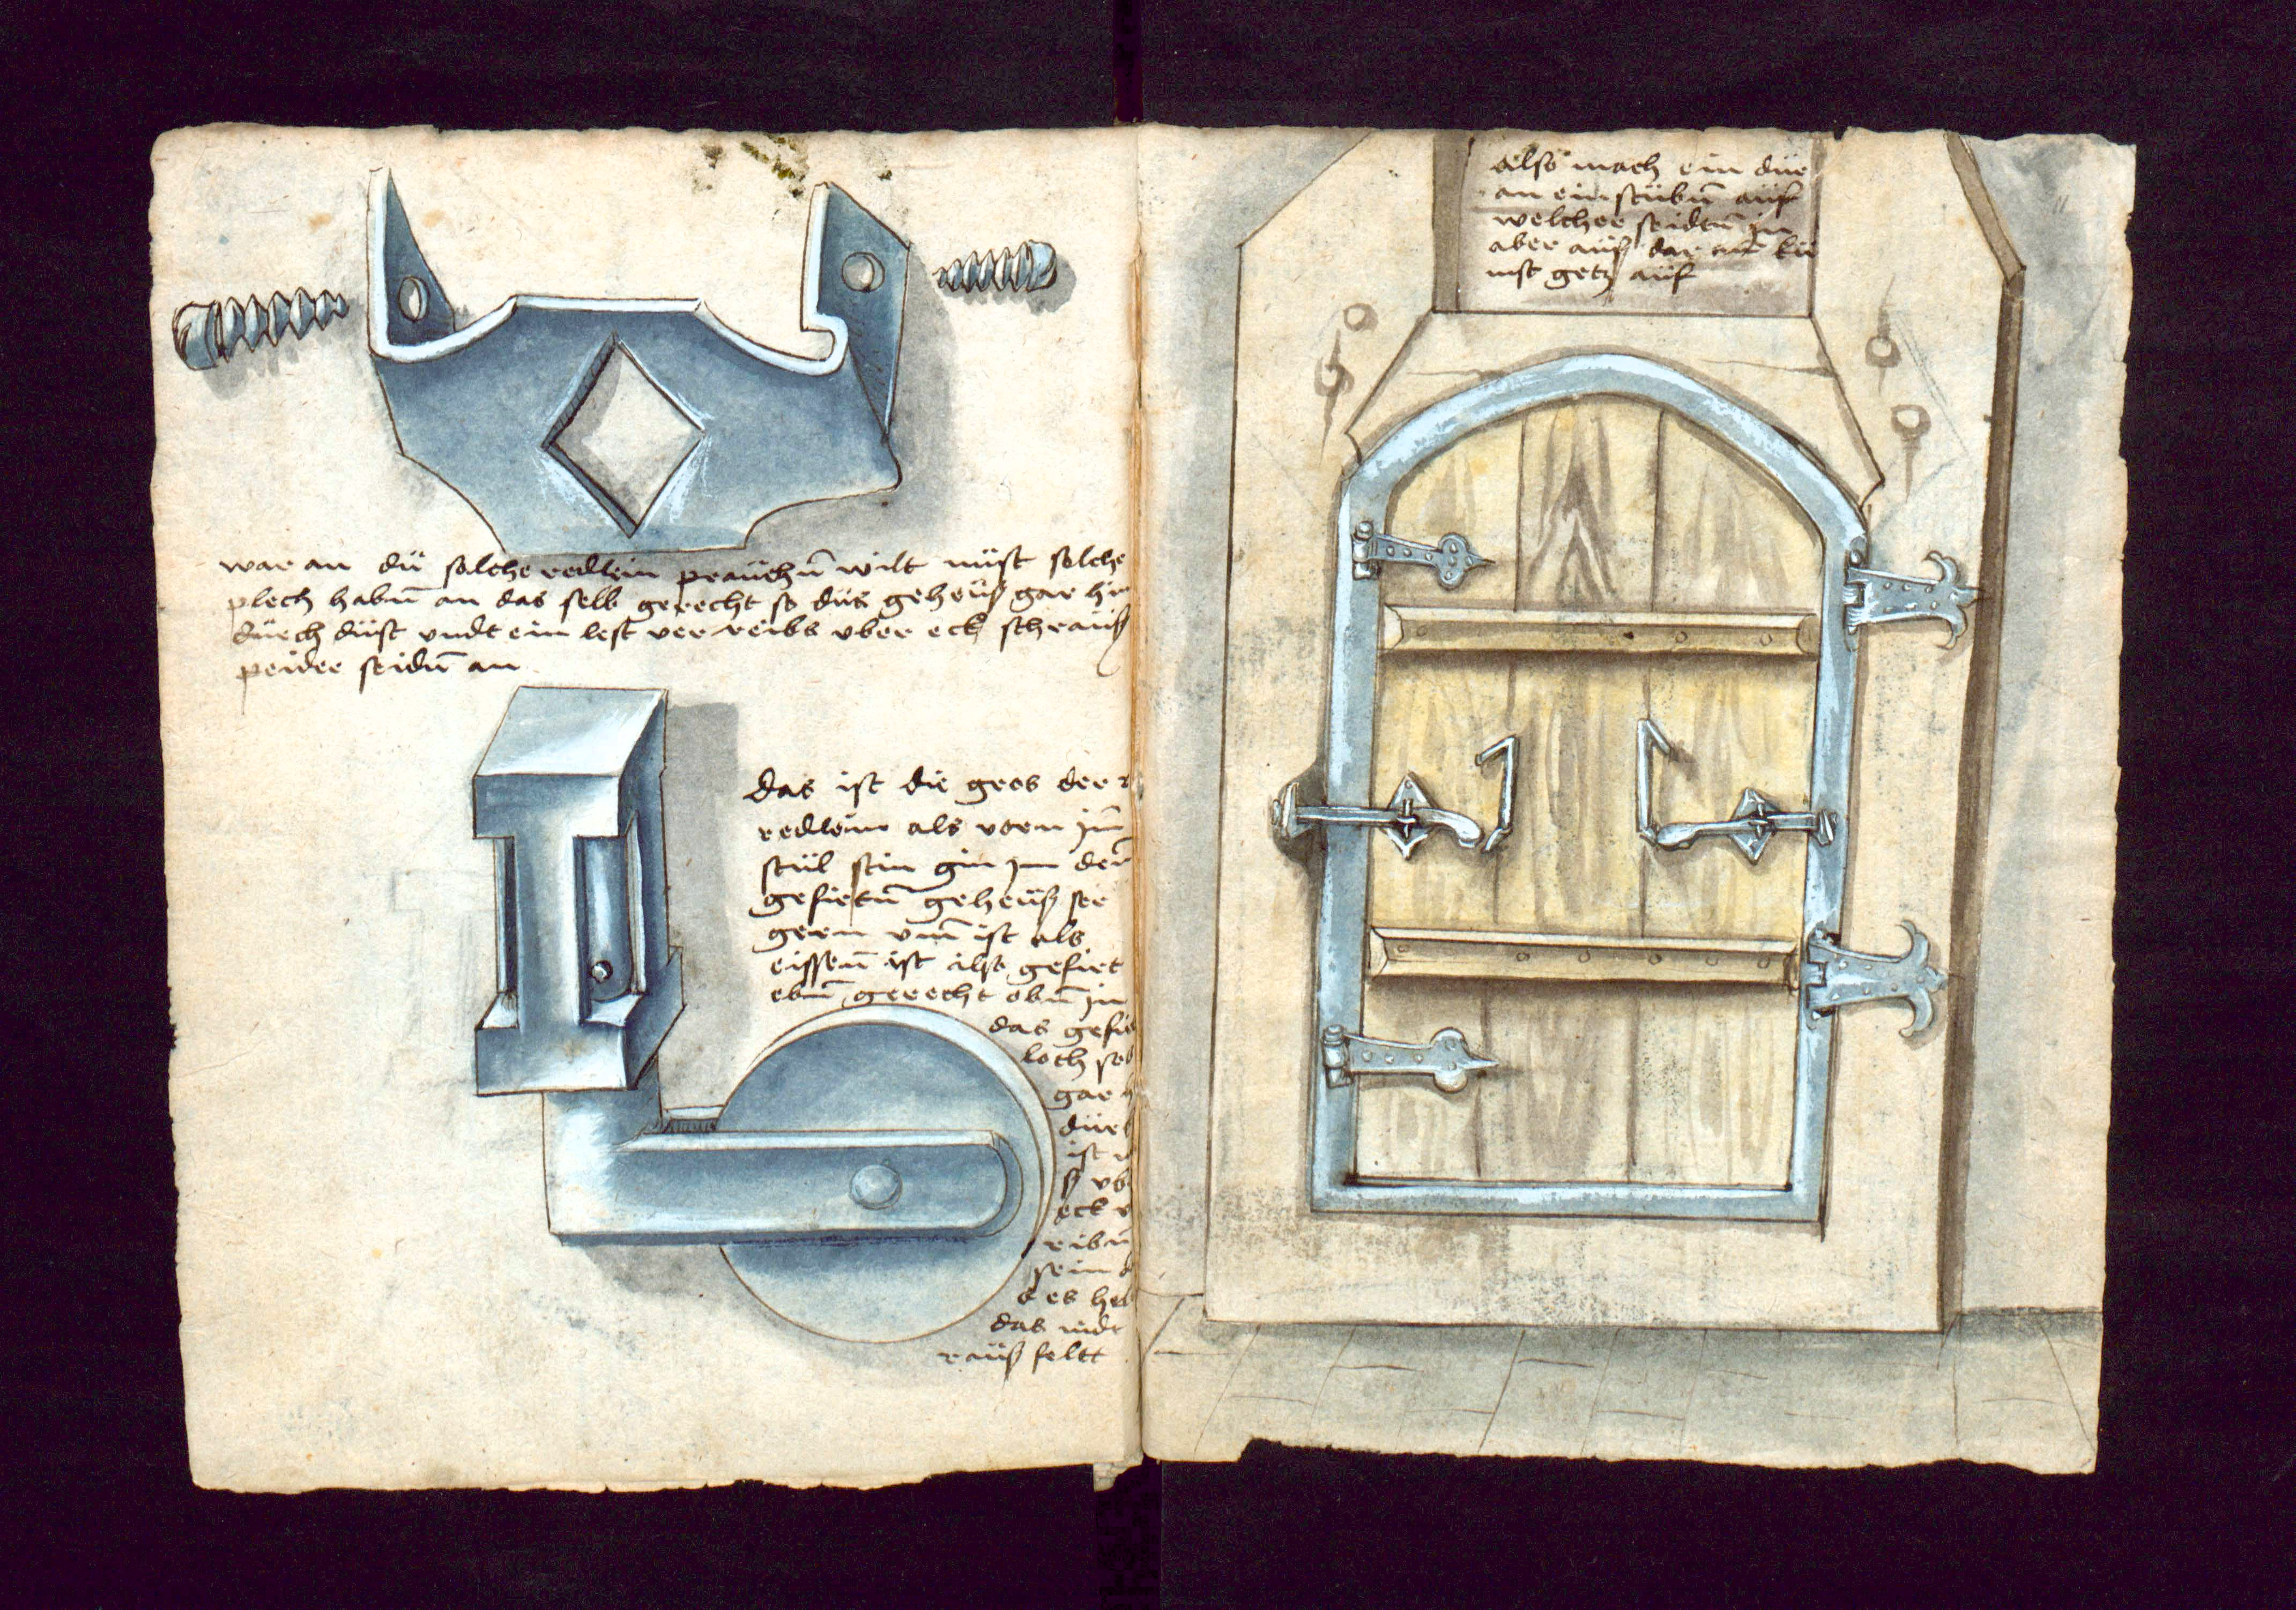 war an dü solche redlein praüchn̄ wilt müst solche
plech habn̄ an das selb gerecht so düs geheüß gar hin
dürch düst vndt ein lest ver reibs vber eck schraüß
peider seidn̄ an
das ist die gros der
redlein als vorn jm̄
stül sein gin jm der
gefirtn̄ geheüß ser
gern vm̄ ist als
eissen̄ ist also gefirt
ebn̄ gerecht obn̄ jn
das gefir
loch so
gar
dürch
ist
ß vb
eck v
ribn̄
sein
d es her
das nidt
raüß felt
also mach ein dür
an ein stübn̄ aüf
welcher seidtn̄ jn
aber aüß dar aüf kü
mst getz aüf